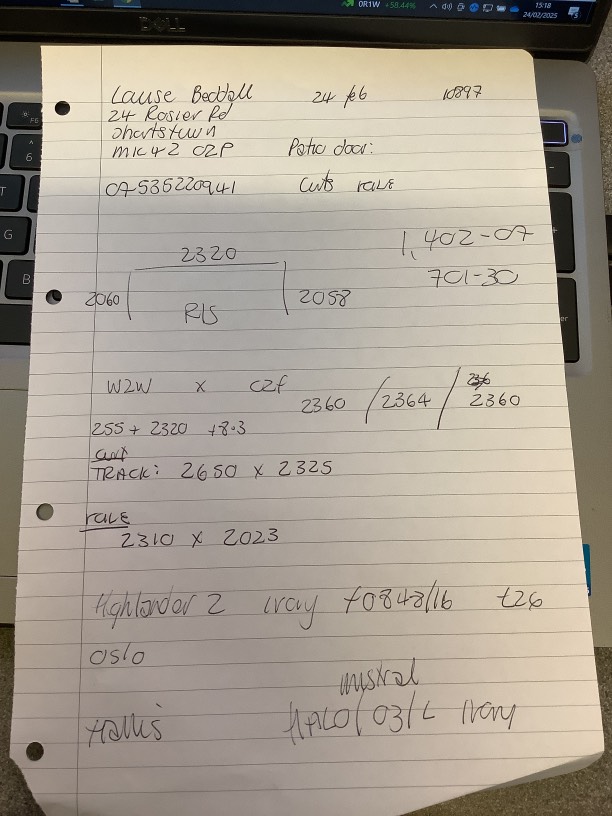 0R1W +58.44%
15:18
24/02/2025
DELL
Lause Beddall 24 feb 10897
24 Rosier Rd
Shortstown
MK42 0ZP Patio door:
07535220941 Curts rale
1,402-07
2320 701-30
2060 RIS 2058
W2W x C2f 2360 / 2364 / 2360
255 + 2320 + 8.3
curt
TRACK: 2650 x 2325
rale
2310 x 2023
Highlander 2 Ivory f0843/16 t26
Oslo
mistral
Hallis HALO/03/L Ivory